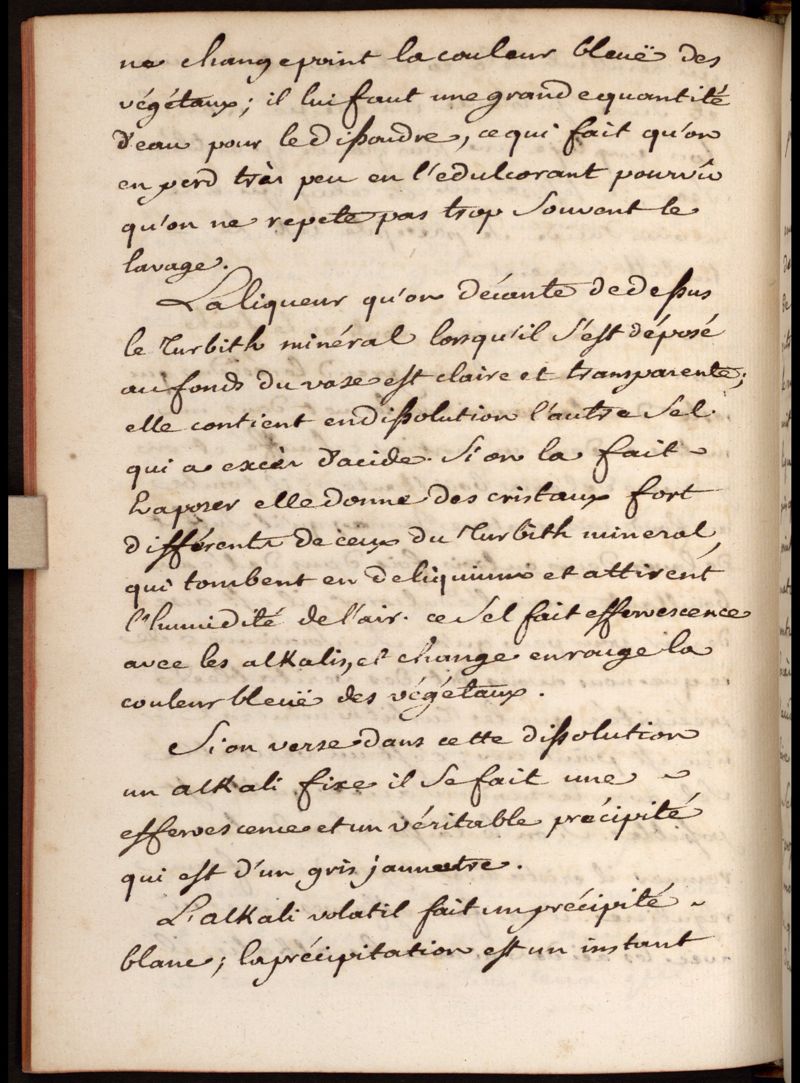 ne change point la couleur bleuë des
végétaux; il lui faut une grande quantité
d'eau pour le dissoudre, ce qui fait qu'on
en perd très peu en l'edulcorant pourvû
qu'on ne repete pas trop souvent le
lavage.
La liqueur qu'on décante de dessus
le Turbith minéral lorsqu'il s'est déposé
au fond du vase est claire et transparente;
elle contient en dissolution l'autre Sel
qui a excès d'acide. Si on la fait
Evaporer elle donne des cristaux fort
différents de ceux du Turbith mineral,
qui tombent en deliquium et attirent
l'humidité de l'air. ce Sel fait effervescence
avec les alkalis, et change en rouge la
couleur bleuë des végétaux.
Si on verse dans cette dissolution
un alkali fixe il se fait une
effervescence et un véritable précipité
qui est d'un gris jaunatre.
L'alkali volatil fait un précipité
blanc; la précipitation est un instant